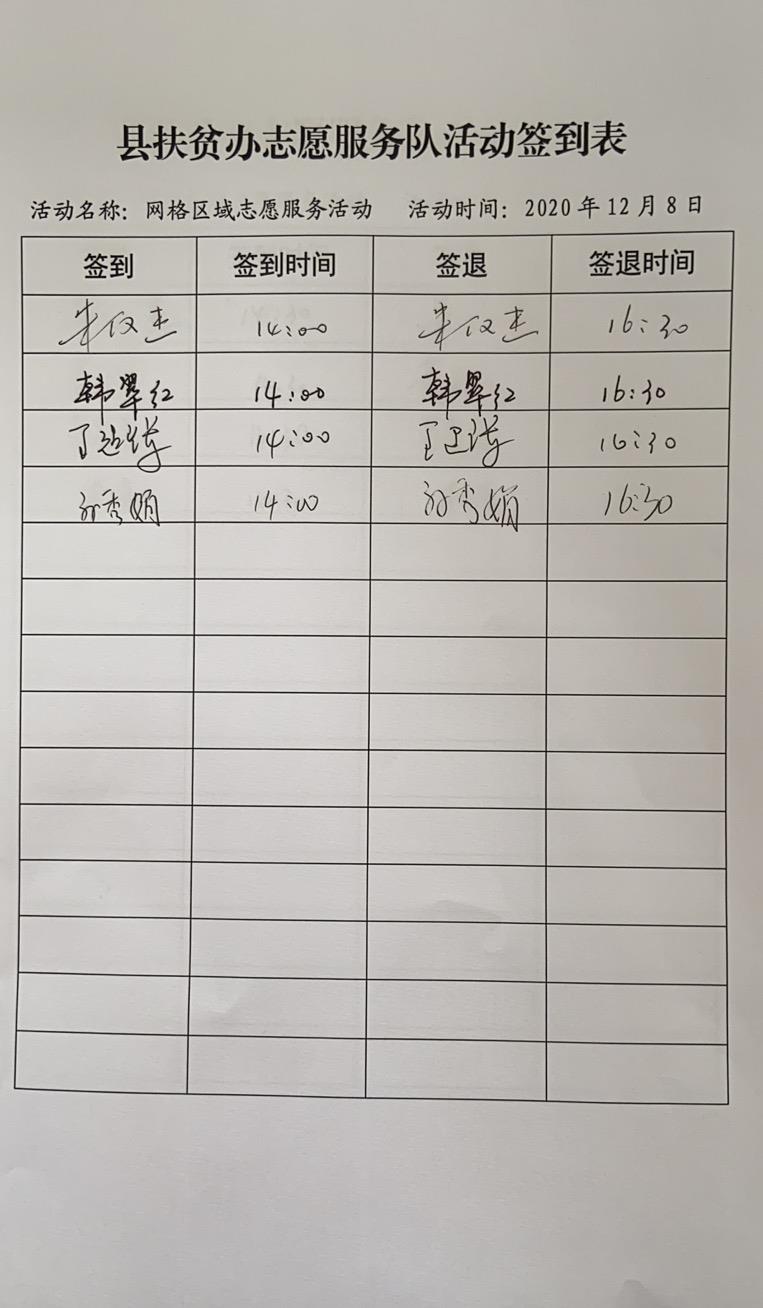 县扶贫办志愿服务队活动签到表
活动名称：网格区域志愿服务活动 活动时间：2020年12月8日
签到 签到时间 签退 签退时间
朱仪杰 14:00 朱仪杰 16:30
韩翠红 14:00 韩翠红 16:30
14:00 16:30
孙秀娟 14:00 孙秀娟 16:30